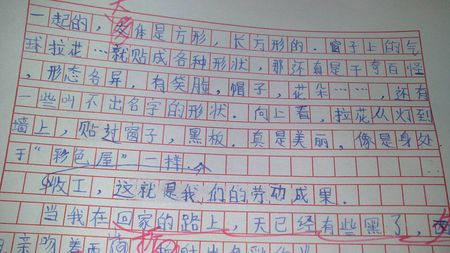 一起的，大体是方形，长方形的．窗子上的气
球拉花…就贴成各种形状，那还真是千奇百怪
，形态各异．有笑脸，帽子，花朵……，还有
一些叫不出名字的形状．向上看，拉花从灯到
墙上，贴过窗子，黑板．真是美丽，像是身处
于“彩色屋”一样．
收工，这就是我们的劳动成果．
当我在回家的路上，天已经有些黑了，
亲吻着西